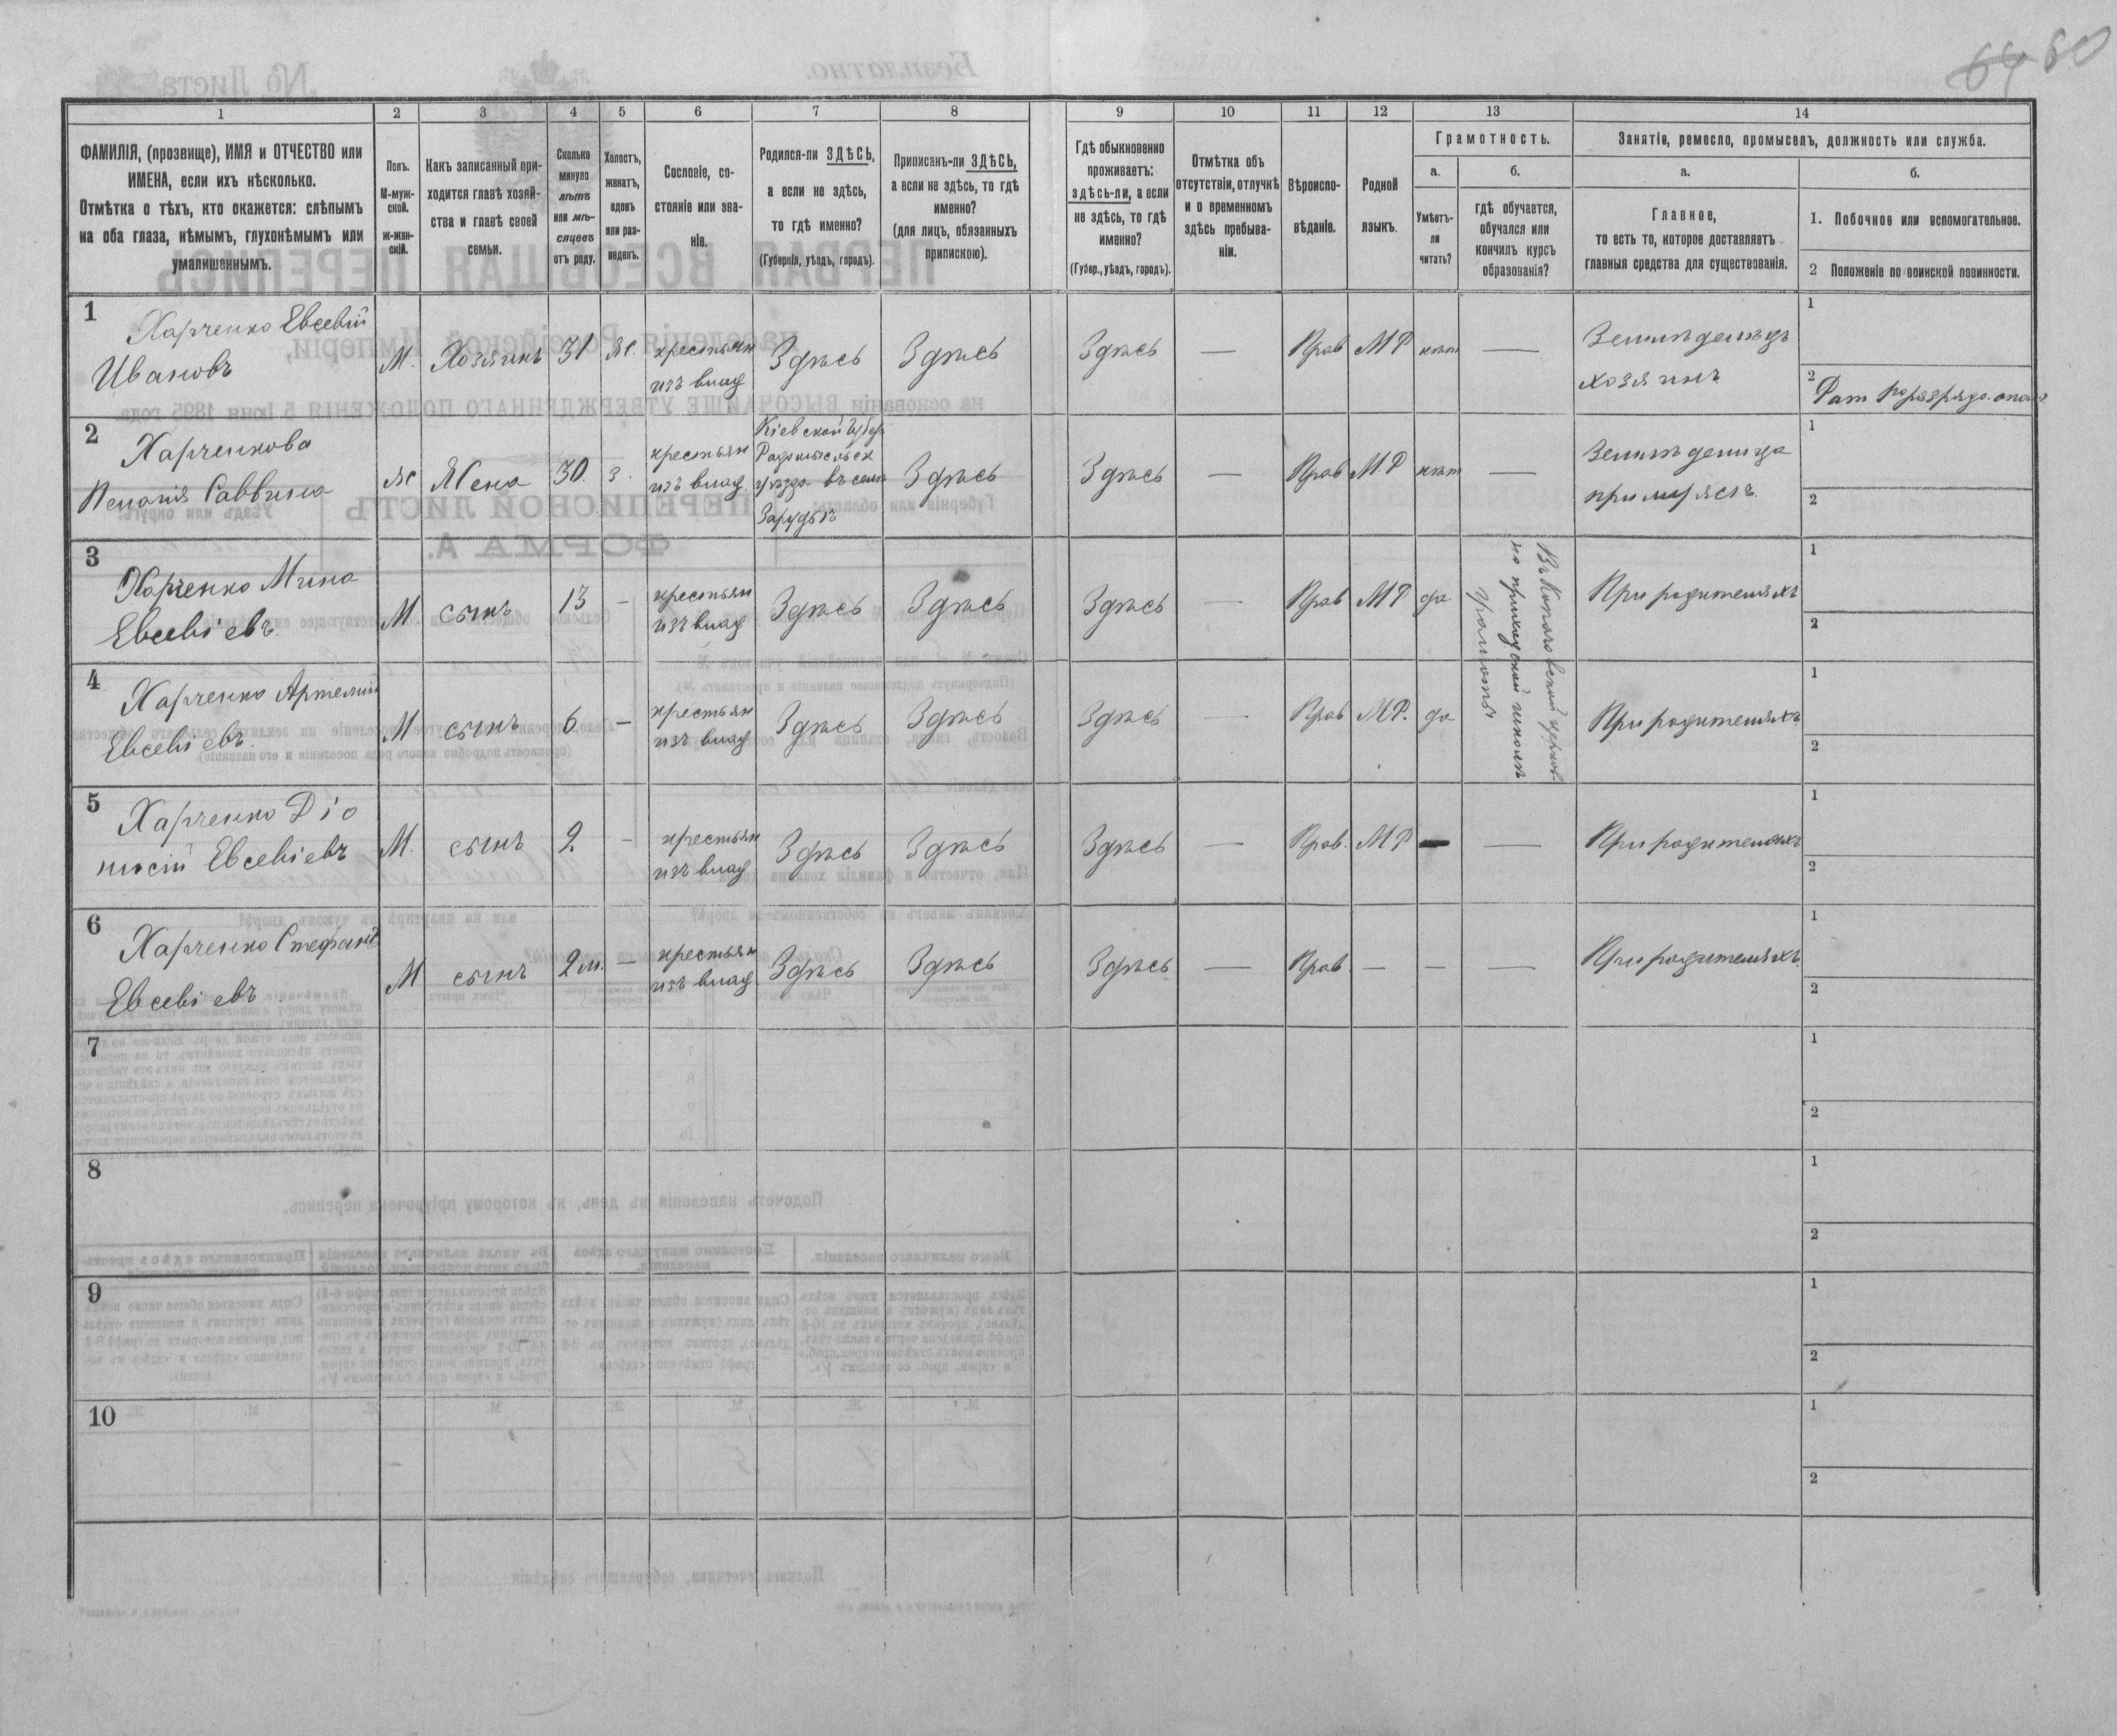 64 80
1
2
3
4
5
6
7
8
9
10
11
12
13
14
ФАМИЛІЯ, (прозвище), ИМЯ и ОТЧЕСТВО или
ИМЕНА, если ихъ нѣсколько.
Отмѣтка о тѣхъ, кто окажется: слѣпымъ
на оба глаза, нѣмымъ, глухонѣмымъ или
умалишеннымъ.
Полъ.
М-муж-
ской.
ж-жен-
скій.
Какъ записанный при-
ходится главѣ хозяй-
ства и главѣ своей
семьи.
Сколько
минуло
лѣтъ
или мѣ-
сяцевъ
отъ роду.
Холостъ,
женатъ,
вдовъ
или раз-
веденъ.
Сословіе, со-
стояніе или зва-
ніе.
Родился-ли ЗДѢСЬ,
а если не здѣсь,
то гдѣ именно?
(Губернія, уѣздъ, городъ).
Приписанъ-ли ЗДѢСЬ,
а если не здѣсь, то гдѣ
именно?
(для лицъ, обязанныхъ
припискою).
Гдѣ обыкновенно
проживаетъ:
здѣсь-ли, а если
не здѣсь, то гдѣ
именно?
(Губер., уѣздъ, городъ).
Отмѣтка объ
отсутствіи, отлучкѣ
и о временномъ
здѣсь пребыва-
ніи.
Вѣроиспо-
вѣданіе.
Родной
языкъ.
Грамотность.
а.
Умѣетъ-
ли
читать?
б.
гдѣ обучается,
обучался или
кончилъ курсъ
образованія?
Занятіе, ремесло, промыселъ, должность или служба.
а.
Главное,
то есть то, которое доставляетъ
главныя средства для существованія.
б.
1. Побочное или вспомогательное.
2 Положеніе по воинской повинности.
1
Харченко Евсевій
Ивановъ
М.
Хозяинъ
31
Ж.
крестьян
изъ влад
Здѣсь
Здѣсь
Здѣсь
—
Прав
МР
нѣт
—
Земледѣлецъ
хозяинъ
1
2
2
Харченкова
Пелагія Саввина
Ж
Жена
30.
З.
крестьян
изъ влад.
Кіевской Губер
Радомысльск
уѣзда въ селѣ
Зарудьѣ
Здѣсь
Здѣсь
—
Прав
МР
нѣт
—
при мужѣ.
1
2
3
Харченко Мина
Евсевіевъ.
М
сынъ
13
—
крестьян
изъ влад
Здѣсь
Здѣсь
Здѣсь
—
Прав
МР
да
Въ Копачовской церков-
но приходской школѣ
грамотѣ
При родителяхъ
1
2
4
Харченко Артемій
Евсевіевъ.
М
сынъ
6.
—
крестьян
изъ влад
Здѣсь
Здѣсь
Здѣсь
—
Прав
МР.
да
При родителяхъ
1
2
5
Харченко Діо
нисій Евсевіевъ
М.
сынъ
2.
—
крестьян
изъ влад
Здѣсь
Здѣсь
Здѣсь
—
Прав.
МР
—
—
При родителяхъ
1
2
6
Харченко Стефанъ
Евсевіевъ.
М
сынъ
2 м.
—
крестьян
изъ влад
Здѣсь
Здѣсь
Здѣсь
—
Прав
—
—
—
При родителяхъ
1
2
7
1
2
8
1
2
9
1
2
10
1
2